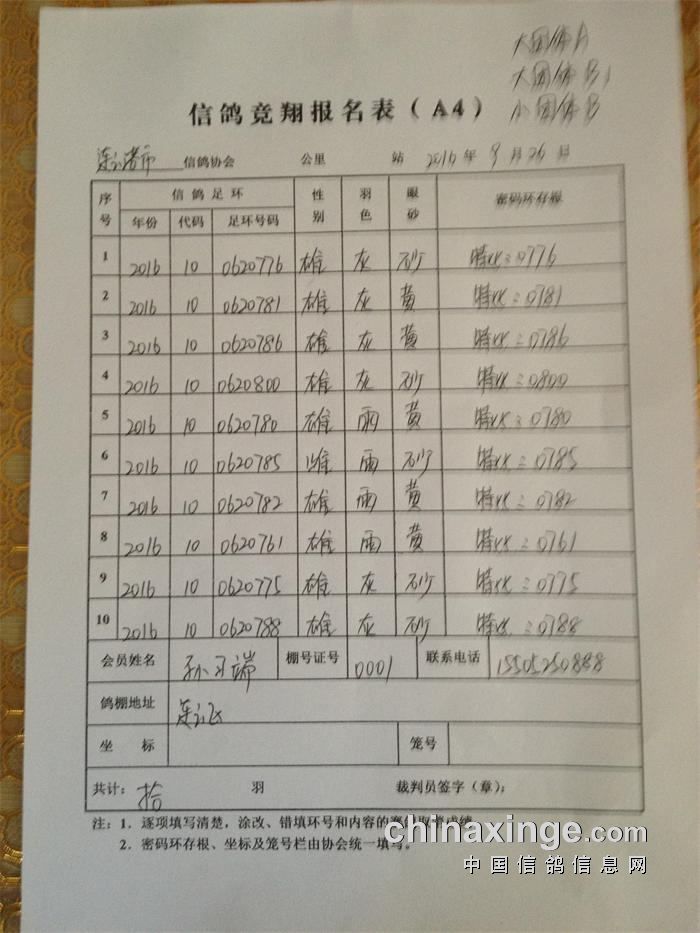 大团体A
大团体B1
小团体B
信鸽竞翔报名表（A4）
连云港市 信鸽协会 公里 站 2016年9月26日
序号 信鸽足环 性别 羽色 眼砂 密码环存根
年份 代码 足环号码
1 2016 10 0620776 雄 灰 砂 0776
2 2016 10 0620781 雄 灰 黄 0781
3 2016 10 0620786 雄 灰 黄 0786
4 2016 10 0620800 雄 灰 砂 0800
5 2016 10 0620780 雄 雨 黄 0780
6 2016 10 0620785 雌 雨 砂 0785
7 2016 10 0620782 雄 雨 黄 0782
8 2016 10 0620761 雄 雨 黄 0761
9 2016 10 0620775 雄 灰 砂 0775
10 2016 10 0620788 雄 灰 砂 0788
会员姓名 孙 端 棚号证号 0001 联系电话 15505250888
鸽棚地址 连云
坐标 笼号
共计：拾 羽 裁判员签字（章）：
注：1．逐项填写清楚，涂改、错填环号和内容的赛鸽取消成绩。
2．密码环存根、坐标及笼号栏由协会统一填写。
chinaxinge.com
中国信鸽信息网